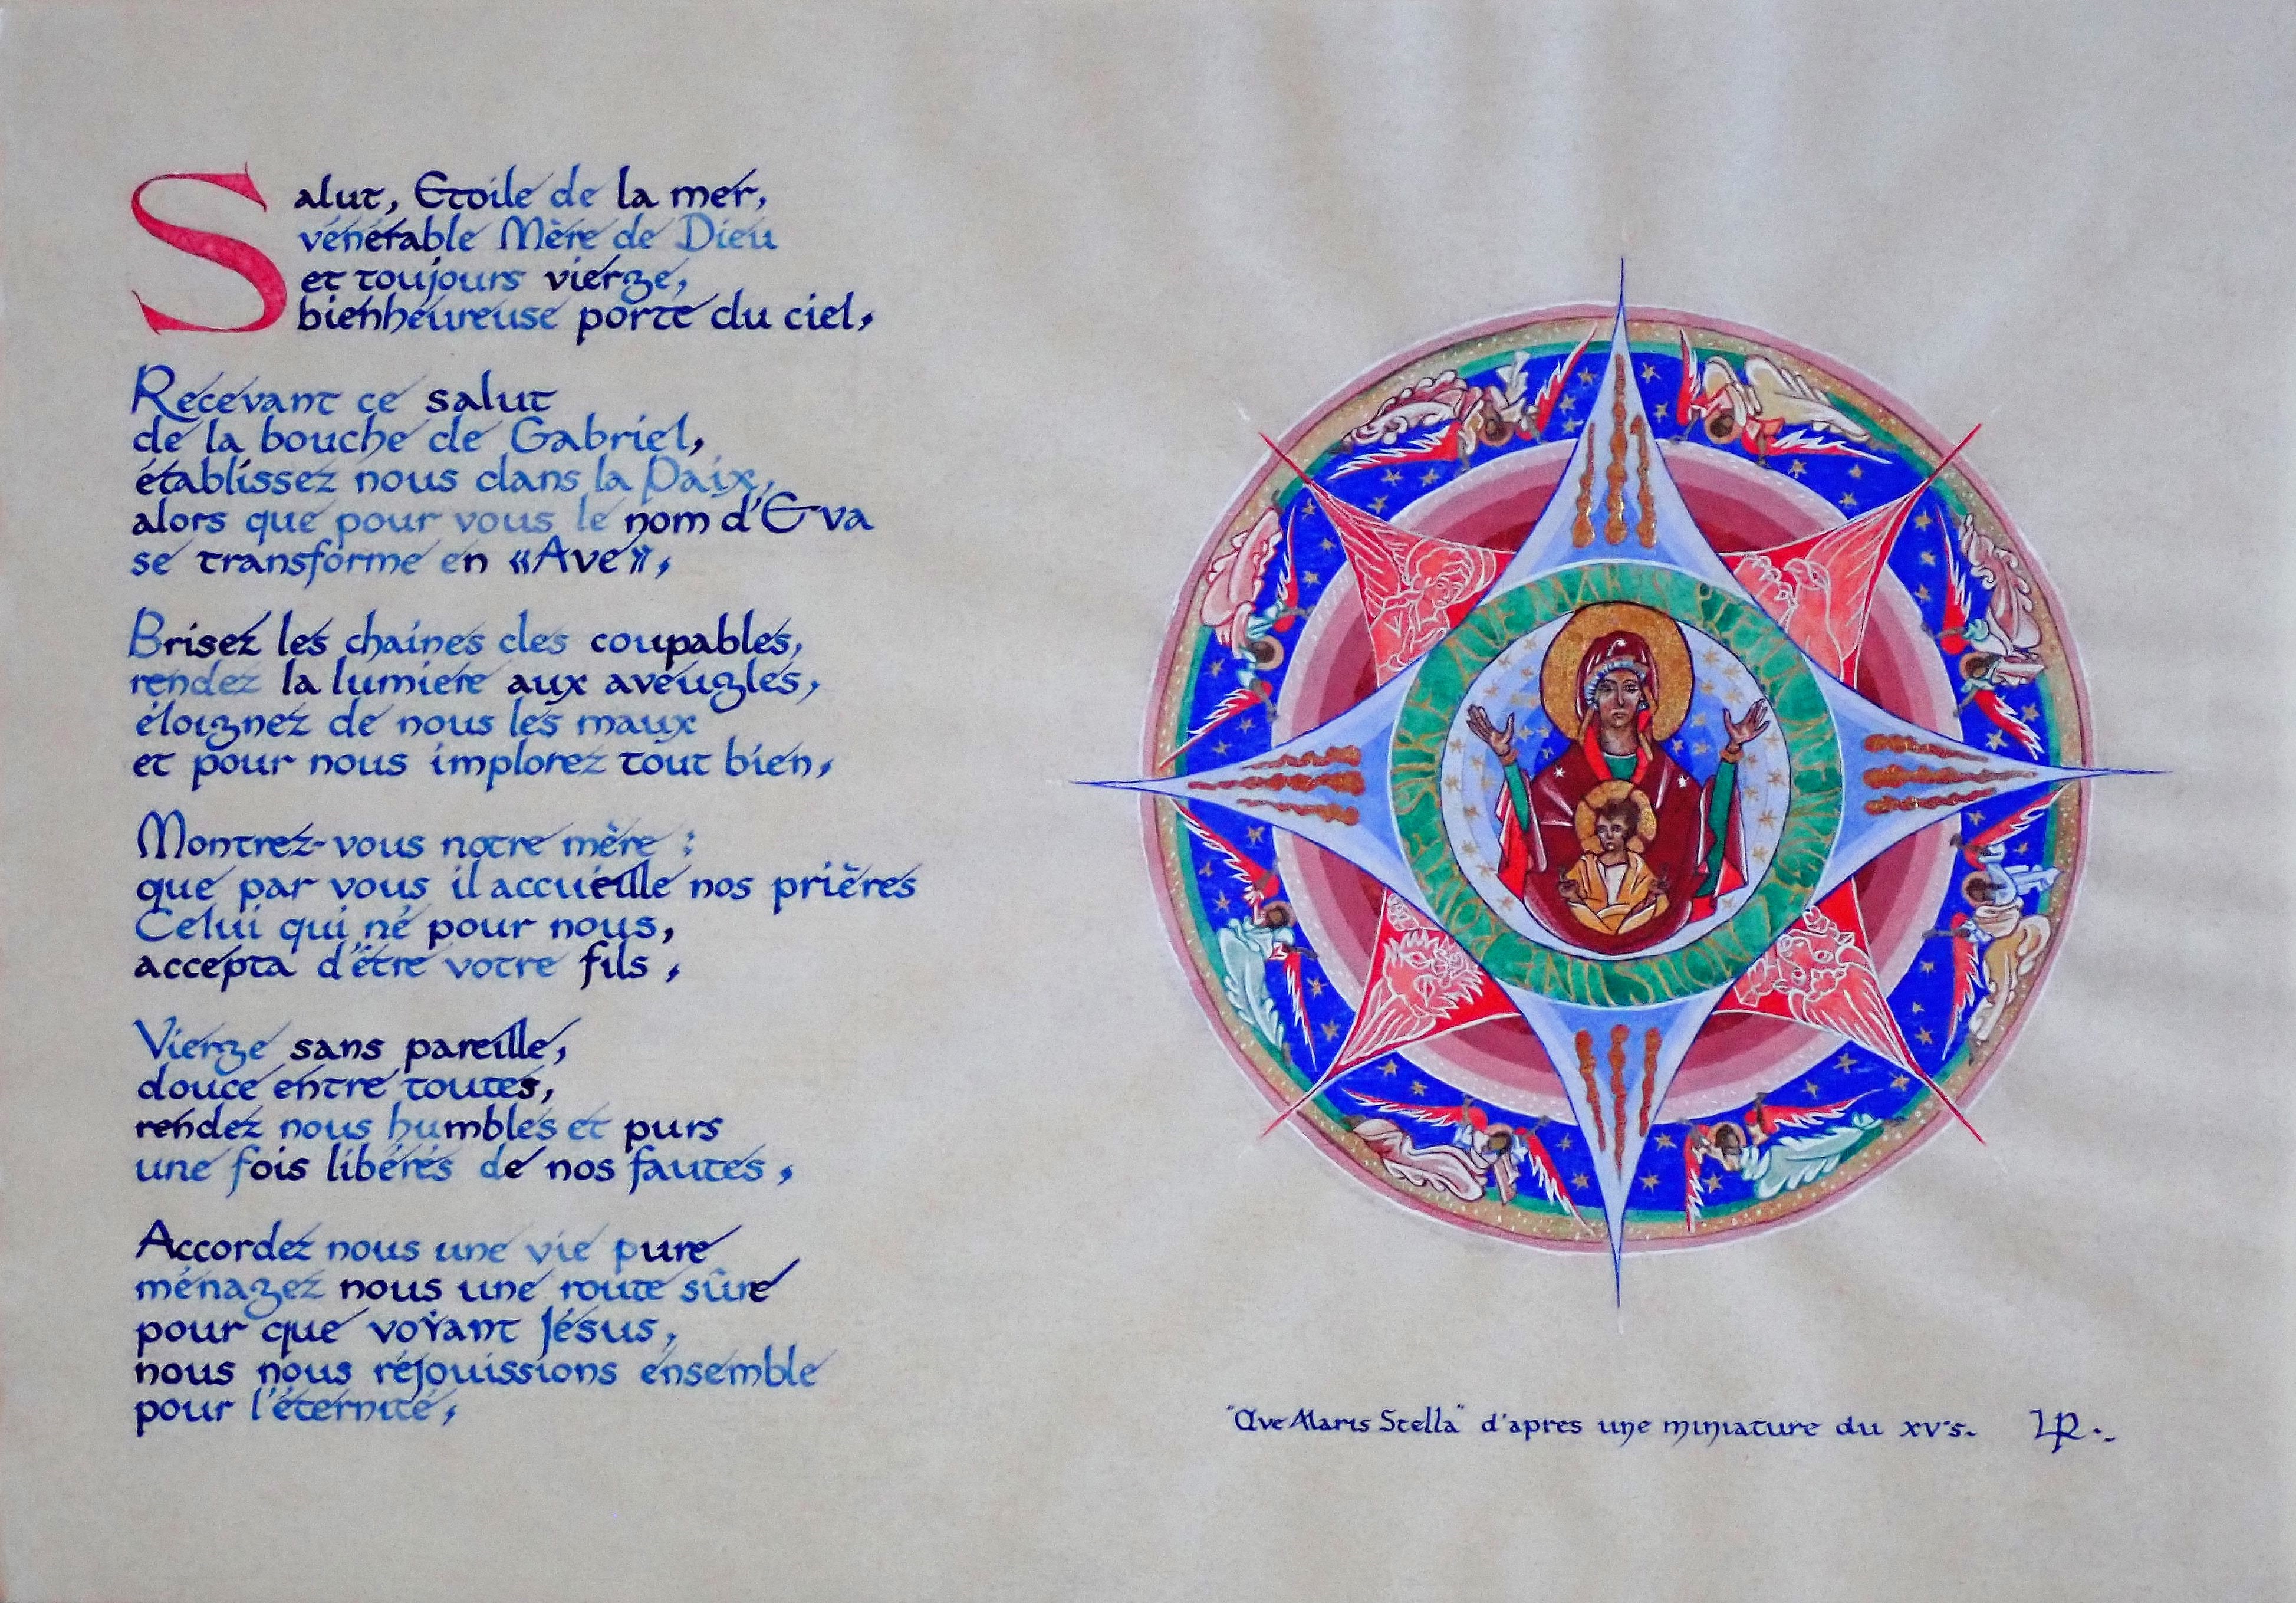 Salut, Etoile de la mer,
vénérable Mère de Dieu
et toujours vierge,
bienheureuse porte du ciel,
Recevant ce salut
de la bouche de Gabriel,
établissez nous dans la Paix,
alors que pour vous le nom d'Eva
se transforme en «Ave»,
Brisez les chaines des coupables,
rendez la lumiere aux aveugles,
éloignez de nous les maux
et pour nous implorez tout bien,
Montrez-vous notre mère :
que par vous il accueille nos prières
Celui qui né pour nous,
accepta d'être votre fils,
Vierge sans pareille,
douce entre toutes,
rendez nous humbles et purs
une fois libérés de nos fautes,
Accordez nous une vie pure
ménagez nous une route sûre
pour que voyant Jésus,
nous nous réjouissions ensemble
pour l'éternité,
AVE MARIS
"Ave Maris Stella" d'apres une miniature du XV°s. LR